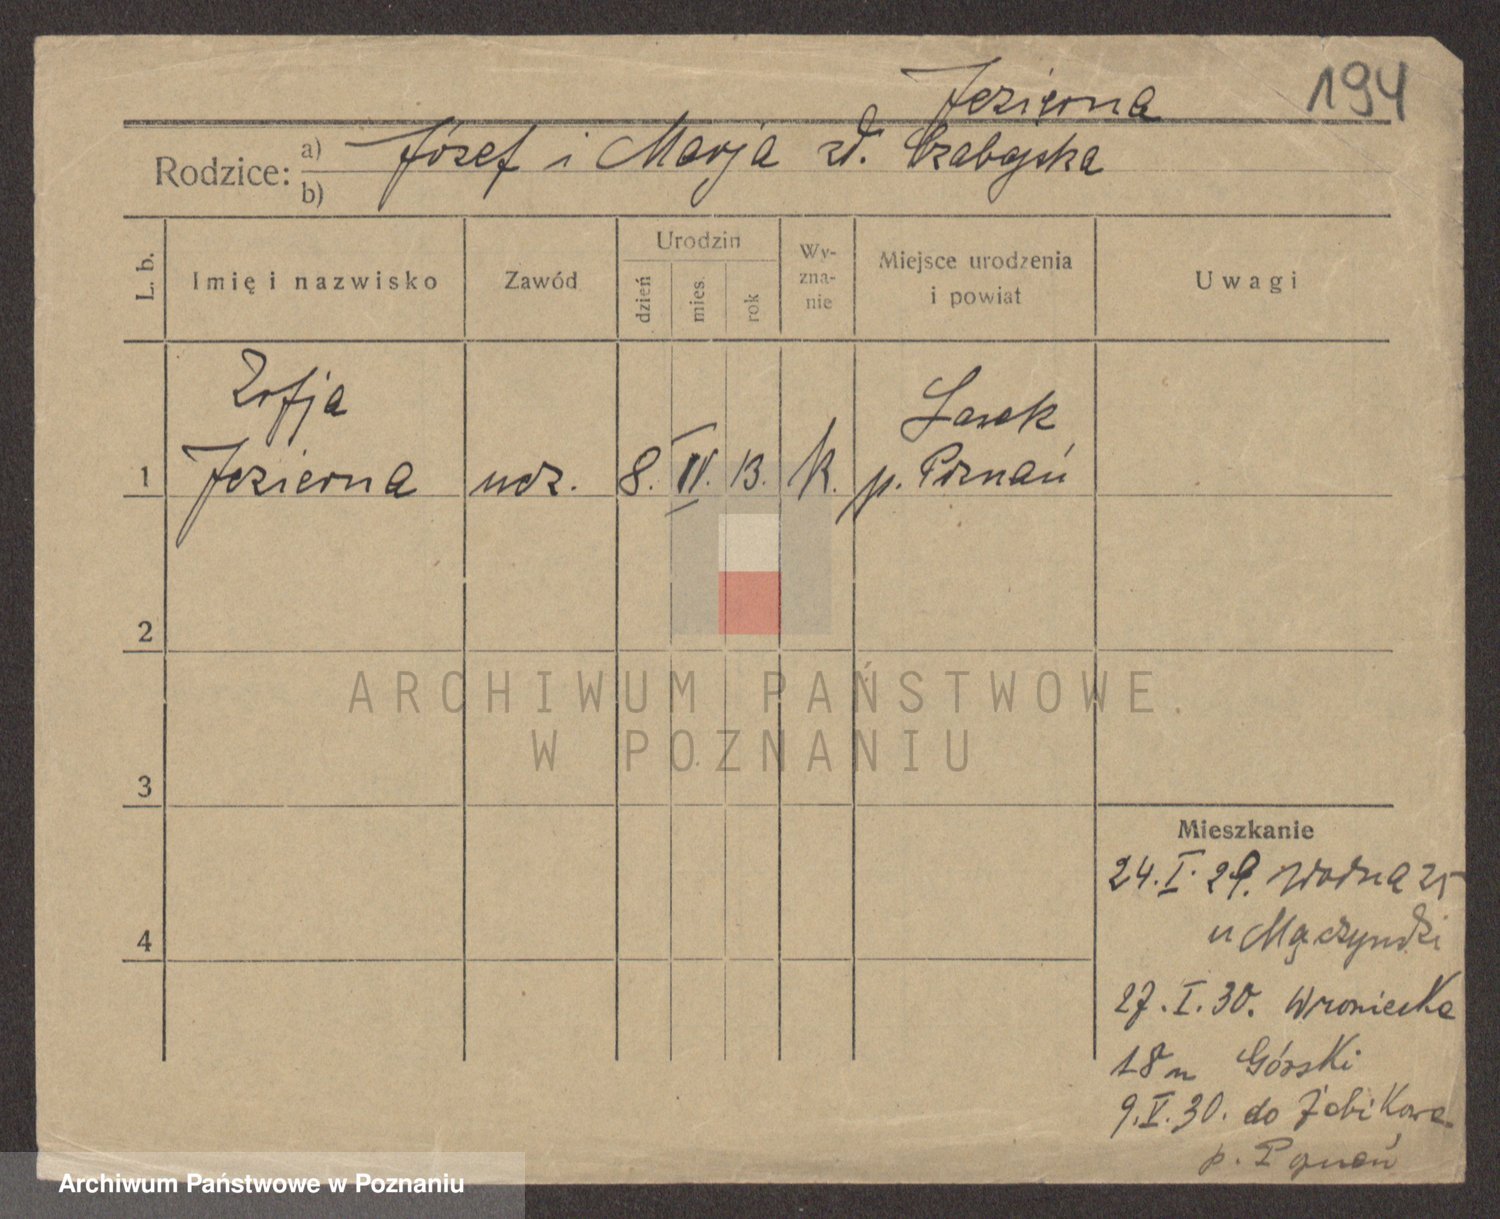 Jezierna 194
Rodzice: a) Józef i Marja zd. Czabajska
b)
L. b. Imię i nazwisko Zawód Urodzin dzień mies. rok Wy-zna-nie Miejsce urodzenia i powiat Uwagi
Zofja Lasek
1 Jezierna 8. IV. 13. k. p. Poznań
2
ARCHIWUM PAŃSTWOWE
W POZNANIU
3
Mieszkanie
24. I. 29. Wodna 25
u
4
27. I. 30. Wroniecka
18 u Górski
9. V. 30. do Żabikowa
p. Poznań
Archiwum Państwowe w Poznaniu